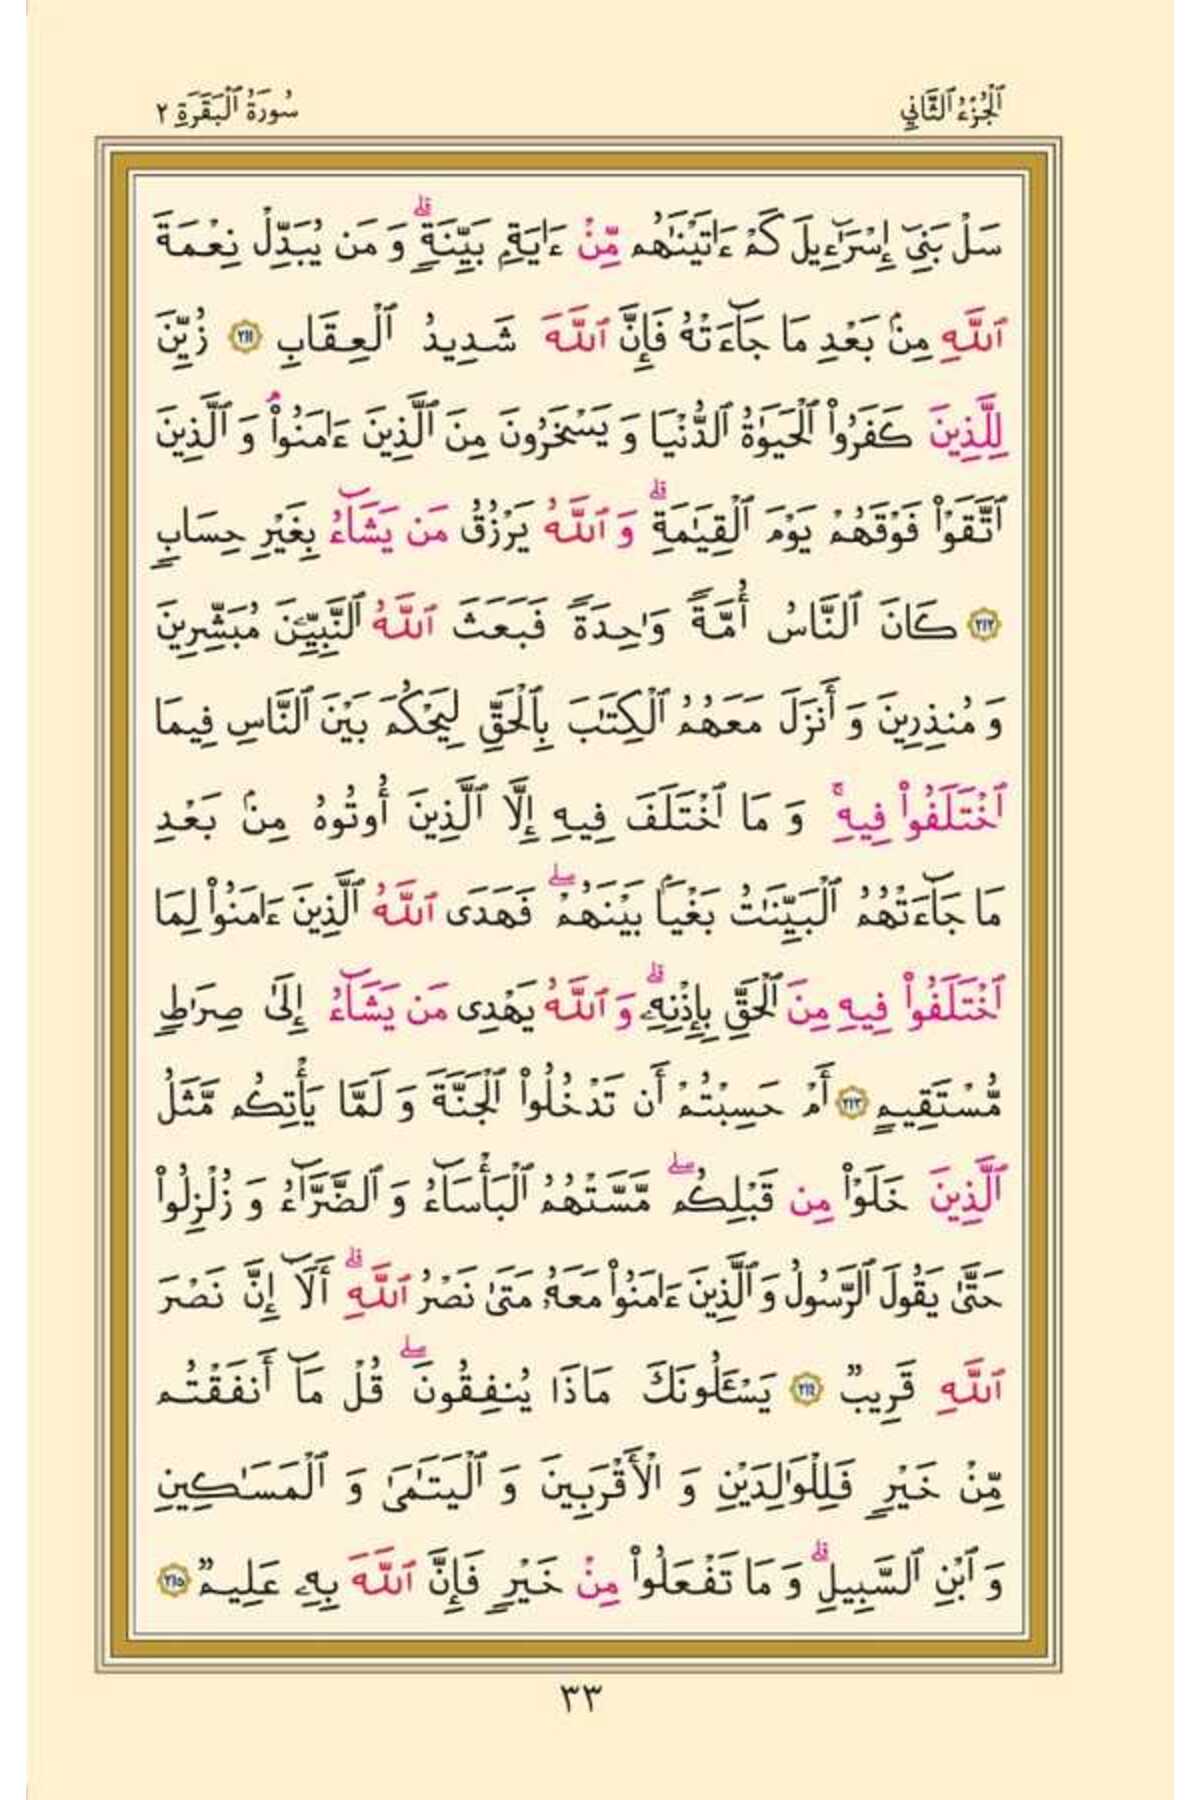 الجُزْءُ الثَّانِي
سُورَةُ الْبَقَرَةِ ٢
سَلْ بَنِىٓ إِسْرَٰٓءِيلَ كَمْ ءَاتَيْنَٰهُم مِّنْ ءَايَةِۭ بَيِّنَةٍۗ وَمَن يُبَدِّلْ نِعْمَةَ
ٱللَّهِ مِنۢ بَعْدِ مَا جَآءَتْهُ فَإِنَّ ٱللَّهَ شَدِيدُ ٱلْعِقَابِ ٢١١ زُيِّنَ
لِلَّذِينَ كَفَرُواْ ٱلْحَيَوٰةُ ٱلدُّنْيَا وَيَسْخَرُونَ مِنَ ٱلَّذِينَ ءَامَنُواْۘ وَٱلَّذِينَ
ٱتَّقَوْاْ فَوْقَهُمْ يَوْمَ ٱلْقِيَٰمَةِۗ وَٱللَّهُ يَرْزُقُ مَن يَشَآءُ بِغَيْرِ حِسَابٍ
٢١٢ كَانَ ٱلنَّاسُ أُمَّةً وَٰحِدَةً فَبَعَثَ ٱللَّهُ ٱلنَّبِيِّـۧنَ مُبَشِّرِينَ
وَمُنذِرِينَ وَأَنزَلَ مَعَهُمُ ٱلْكِتَٰبَ بِٱلْحَقِّ لِيَحْكُمَ بَيْنَ ٱلنَّاسِ فِيمَا
ٱخْتَلَفُواْ فِيهِۚ وَمَا ٱخْتَلَفَ فِيهِ إِلَّا ٱلَّذِينَ أُوتُوهُ مِنۢ بَعْدِ
مَا جَآءَتْهُمُ ٱلْبَيِّنَٰتُ بَغْيَۢا بَيْنَهُمْۖ فَهَدَى ٱللَّهُ ٱلَّذِينَ ءَامَنُواْ لِمَا
ٱخْتَلَفُواْ فِيهِ مِنَ ٱلْحَقِّ بِإِذْنِهِۦۗ وَٱللَّهُ يَهْدِى مَن يَشَآءُ إِلَىٰ صِرَٰطٍ
مُّسْتَقِيمٍ ٢١٣ أَمْ حَسِبْتُمْ أَن تَدْخُلُواْ ٱلْجَنَّةَ وَلَمَّا يَأْتِكُم مَّثَلُ
ٱلَّذِينَ خَلَوْاْ مِن قَبْلِكُمۖ مَّسَّتْهُمُ ٱلْبَأْسَآءُ وَٱلضَّرَّآءُ وَزُلْزِلُواْ
حَتَّىٰ يَقُولَ ٱلرَّسُولُ وَٱلَّذِينَ ءَامَنُواْ مَعَهُۥ مَتَىٰ نَصْرُ ٱللَّهِۗ أَلَآ إِنَّ نَصْرَ
ٱللَّهِ قَرِيبٌ ٢١٤ يَسْـَٔلُونَكَ مَاذَا يُنفِقُونَۖ قُلْ مَآ أَنفَقْتُم
مِّنْ خَيْرٍ فَلِلْوَٰلِدَيْنِ وَٱلْأَقْرَبِينَ وَٱلْيَتَٰمَىٰ وَٱلْمَسَٰكِينِ
وَٱبْنِ ٱلسَّبِيلِۗ وَمَا تَفْعَلُواْ مِنْ خَيْرٍ فَإِنَّ ٱللَّهَ بِهِۦ عَلِيمٌ ٢١٥
٣٣